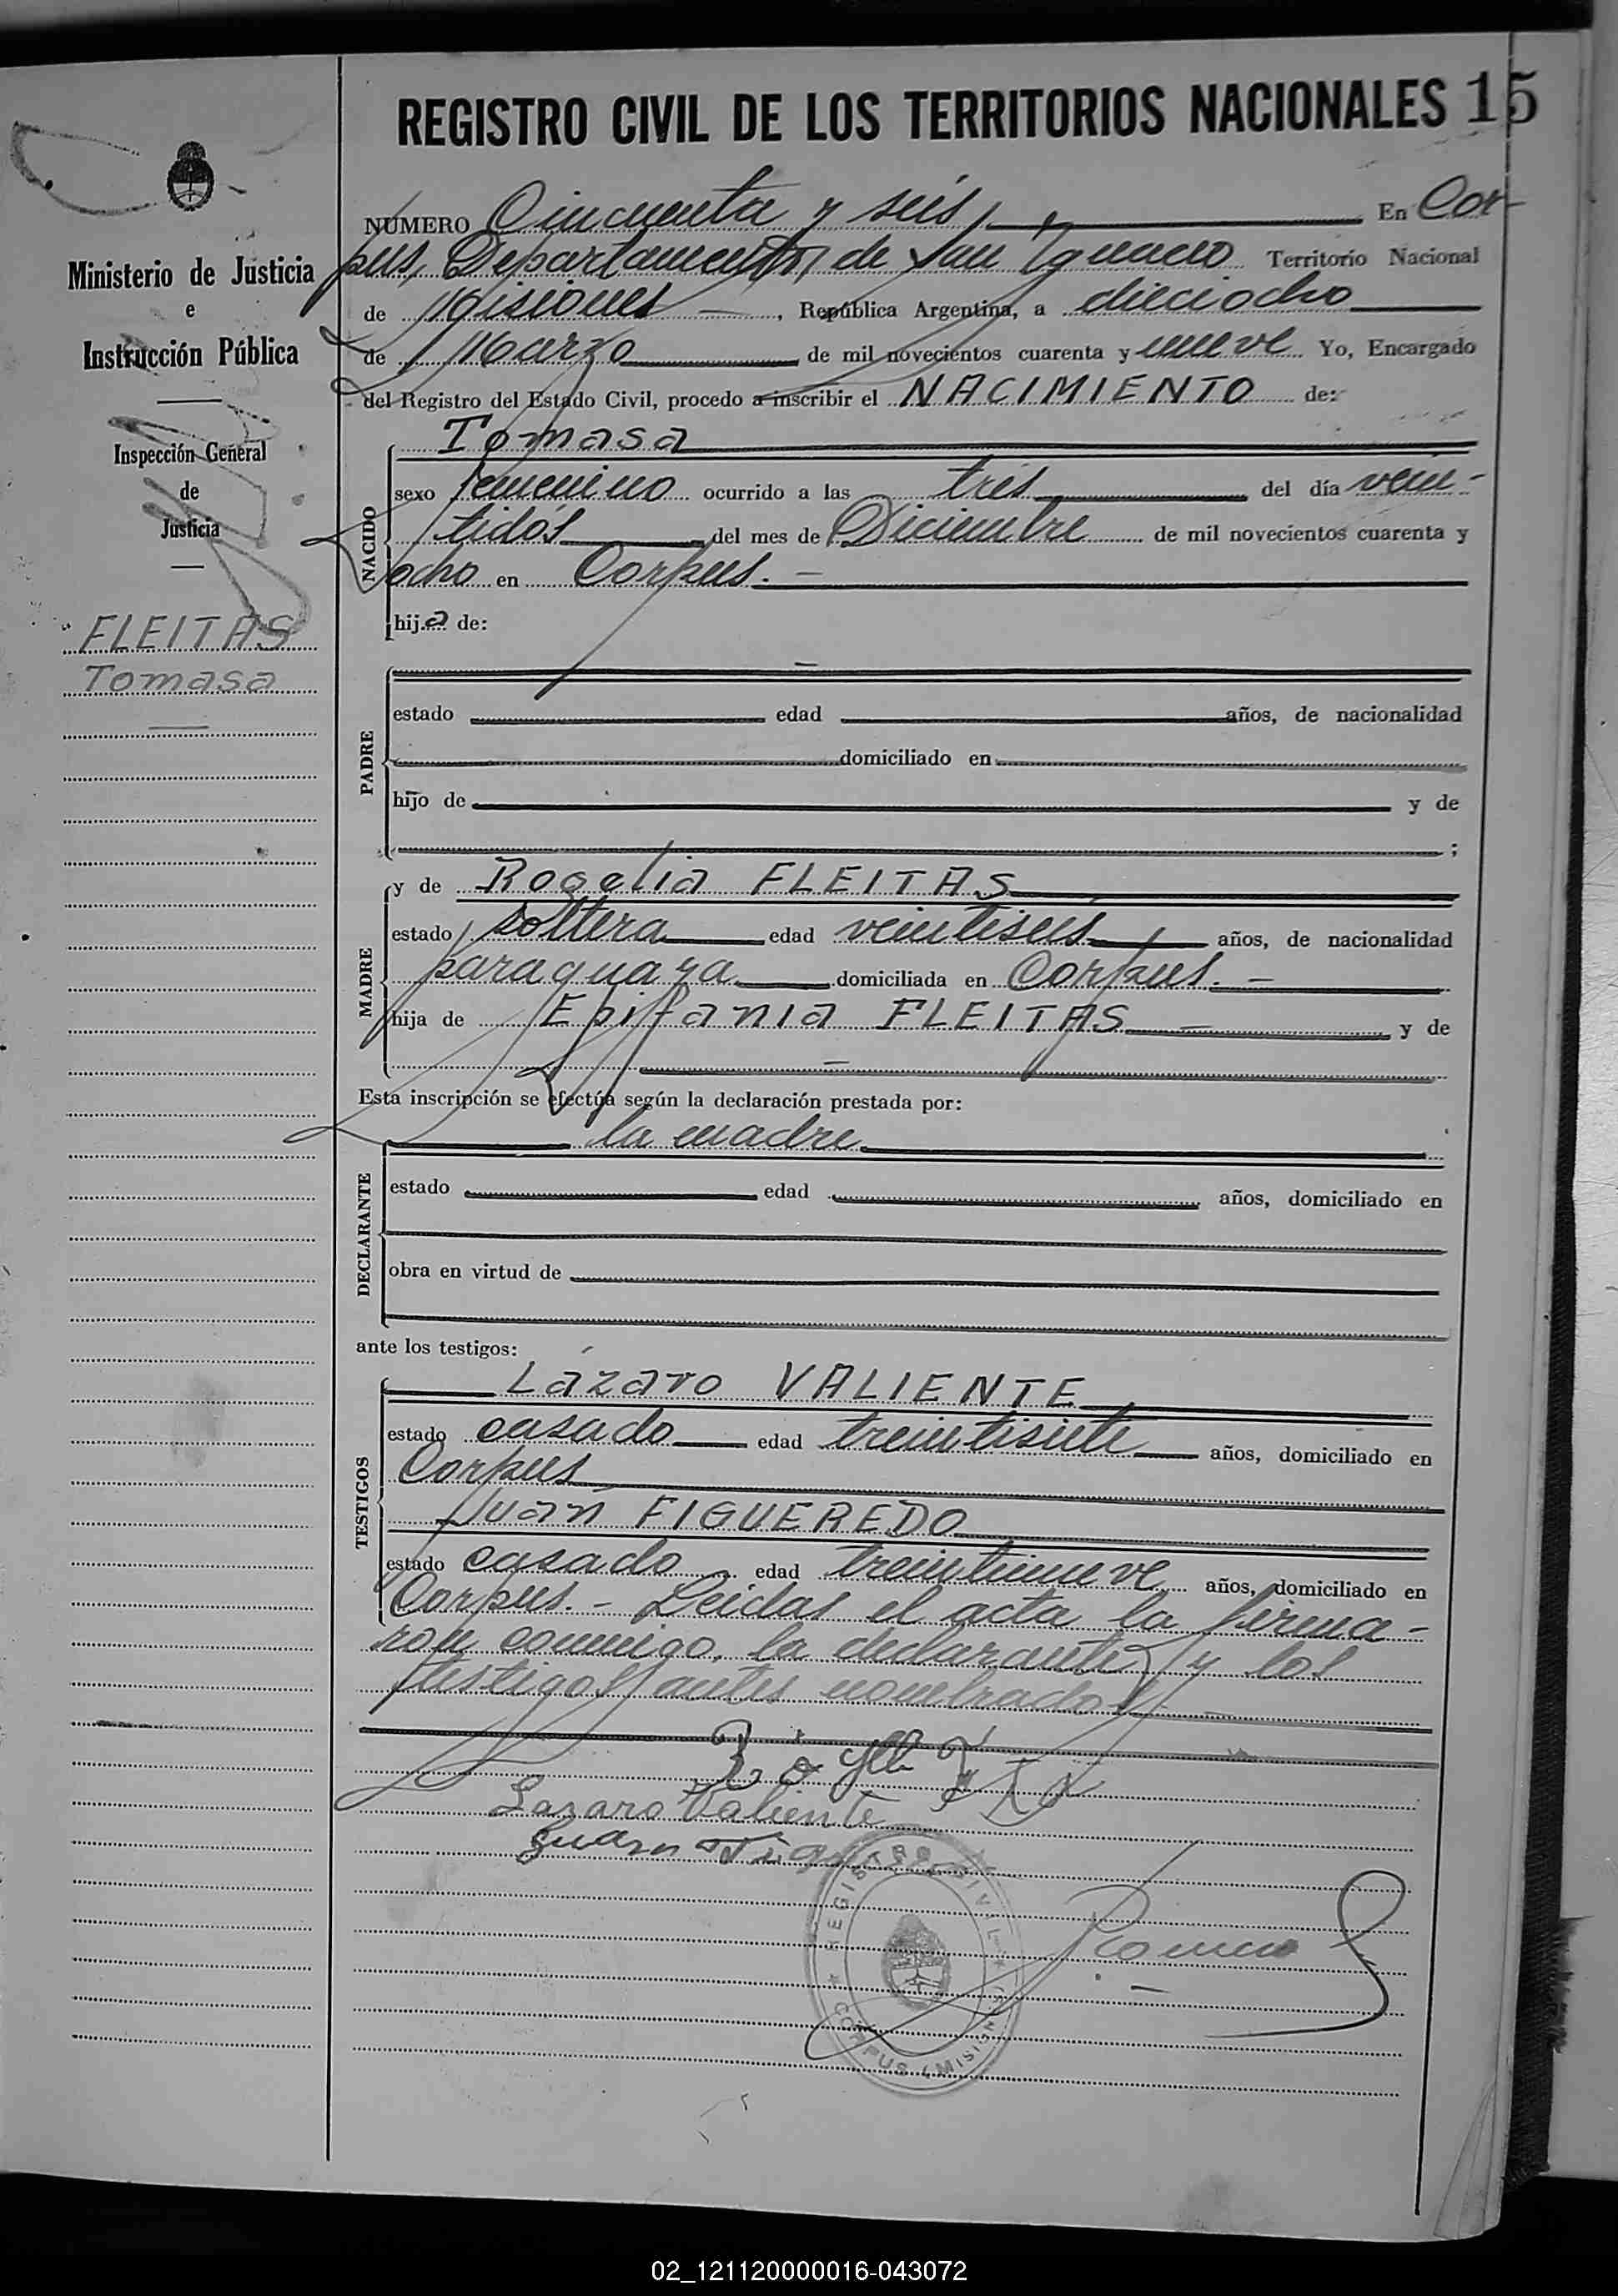 REGISTRO CIVIL DE LOS TERRITORIOS NACIONALES 15
Ministerio de Justicia
e
Instrucción Pública
Inspección General
de
Justicia
FLEITAS
Tomasa
NÚMERO Cincuenta y seis, En Cor-
pus, Departamento de San Ignacio Territorio Nacional
de Misiones, República Argentina, a dieciocho
de Marzo de mil novecientos cuarenta y nueve Yo, Encargado
del Registro del Estado Civil, procedo a inscribir el NACIMIENTO de:
NACIDO
Tomasa
sexo femenino ocurrido a las tres del día vein-
tidós del mes de Diciembre de mil novecientos cuarenta y
ocho en Corpus. -
hija de:
PADRE
estado edad años, de nacionalidad
domiciliado en
hijo de y de
;
MADRE
y de Rogelia FLEITAS
estado soltera edad veintiseis años, de nacionalidad
paraguaya domiciliada en Corpus. -
hija de Epifania FLEITAS y de
Esta inscripción se efectúa según la declaración prestada por:
la madre
DECLARANTE
estado edad años, domiciliado en
obra en virtud de
ante los testigos:
TESTIGOS
Lázaro VALIENTE
estado casado edad treintisiete años, domiciliado en
Corpus
Juan FIGUEREDO
estado casado edad treintinueve años, domiciliado en
Corpus. - Leidas el acta la firma-
ron conmigo, la declarante y los
testigos antes nombrados
Lazaro Valiente
Juan
REGISTRO CIVIL
CORPUS (MISIONES)
02_121120000016-043072